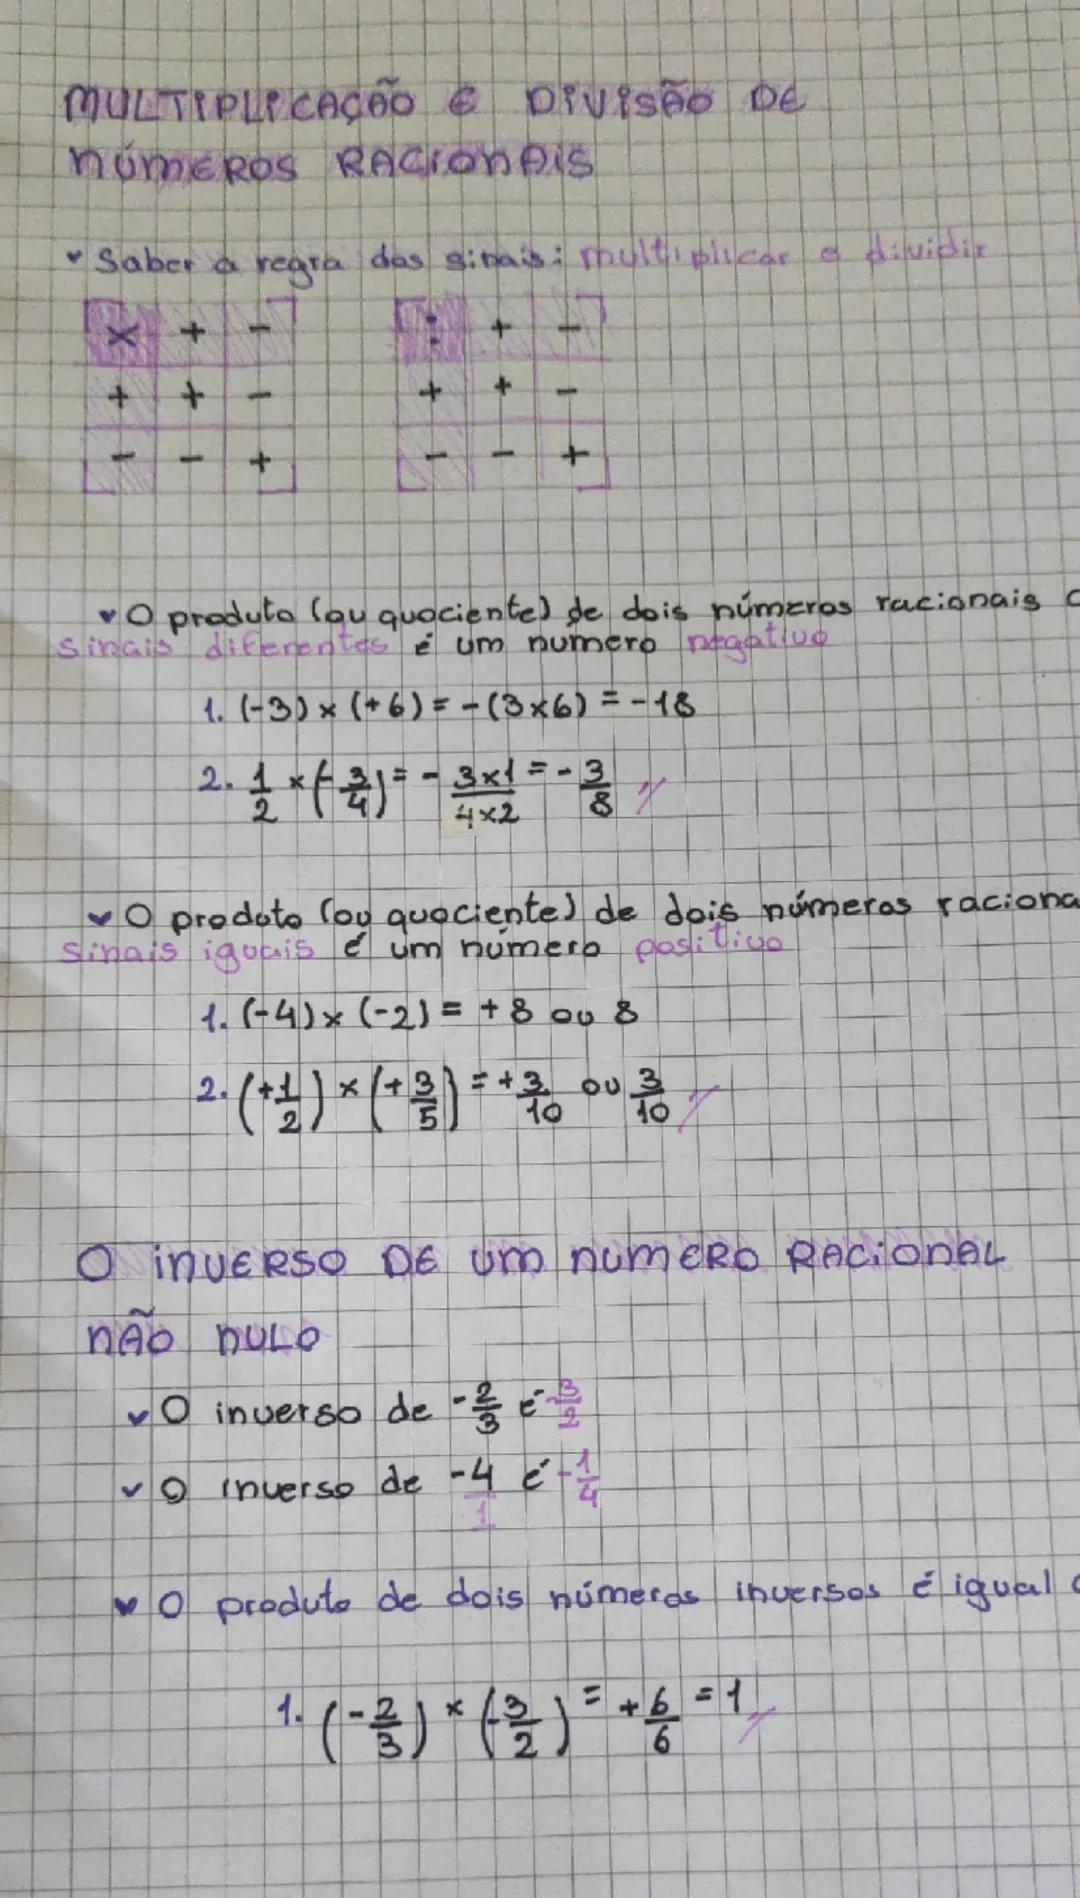 MULTIPLICAÇÃO E DIVISÃO DE
NÚMEROS RACIONAIS
Saber a regra dos sinais: multiplicar e dividir
× + -
+ + -
- - +
: + -
+ + -
- - +
O produto (ou quociente) de dois números racionais c
sinais diferentes é um numero negativo
1. (-3) × (+6) = -(3×6) = -18
2. 1/2 × (-3/4) = - 3×1/4×2 = - 3/8 //
O produto (ou quociente) de dois números raciona
sinais iguais é um número positivo
1. (-4) × (-2) = +8 ou 8
2. (+1/2) × (+3/5) = +3/10 ou 3/10 //
O INVERSO DE UM NUMERO RACIONAL
NÃO NULO
O inverso de -2/3 é -3/2
O inverso de -4/1 é -1/4
O produto de dois números inversos é igual
1. (-2/3) × (-3/2) = +6/6 = 1 //